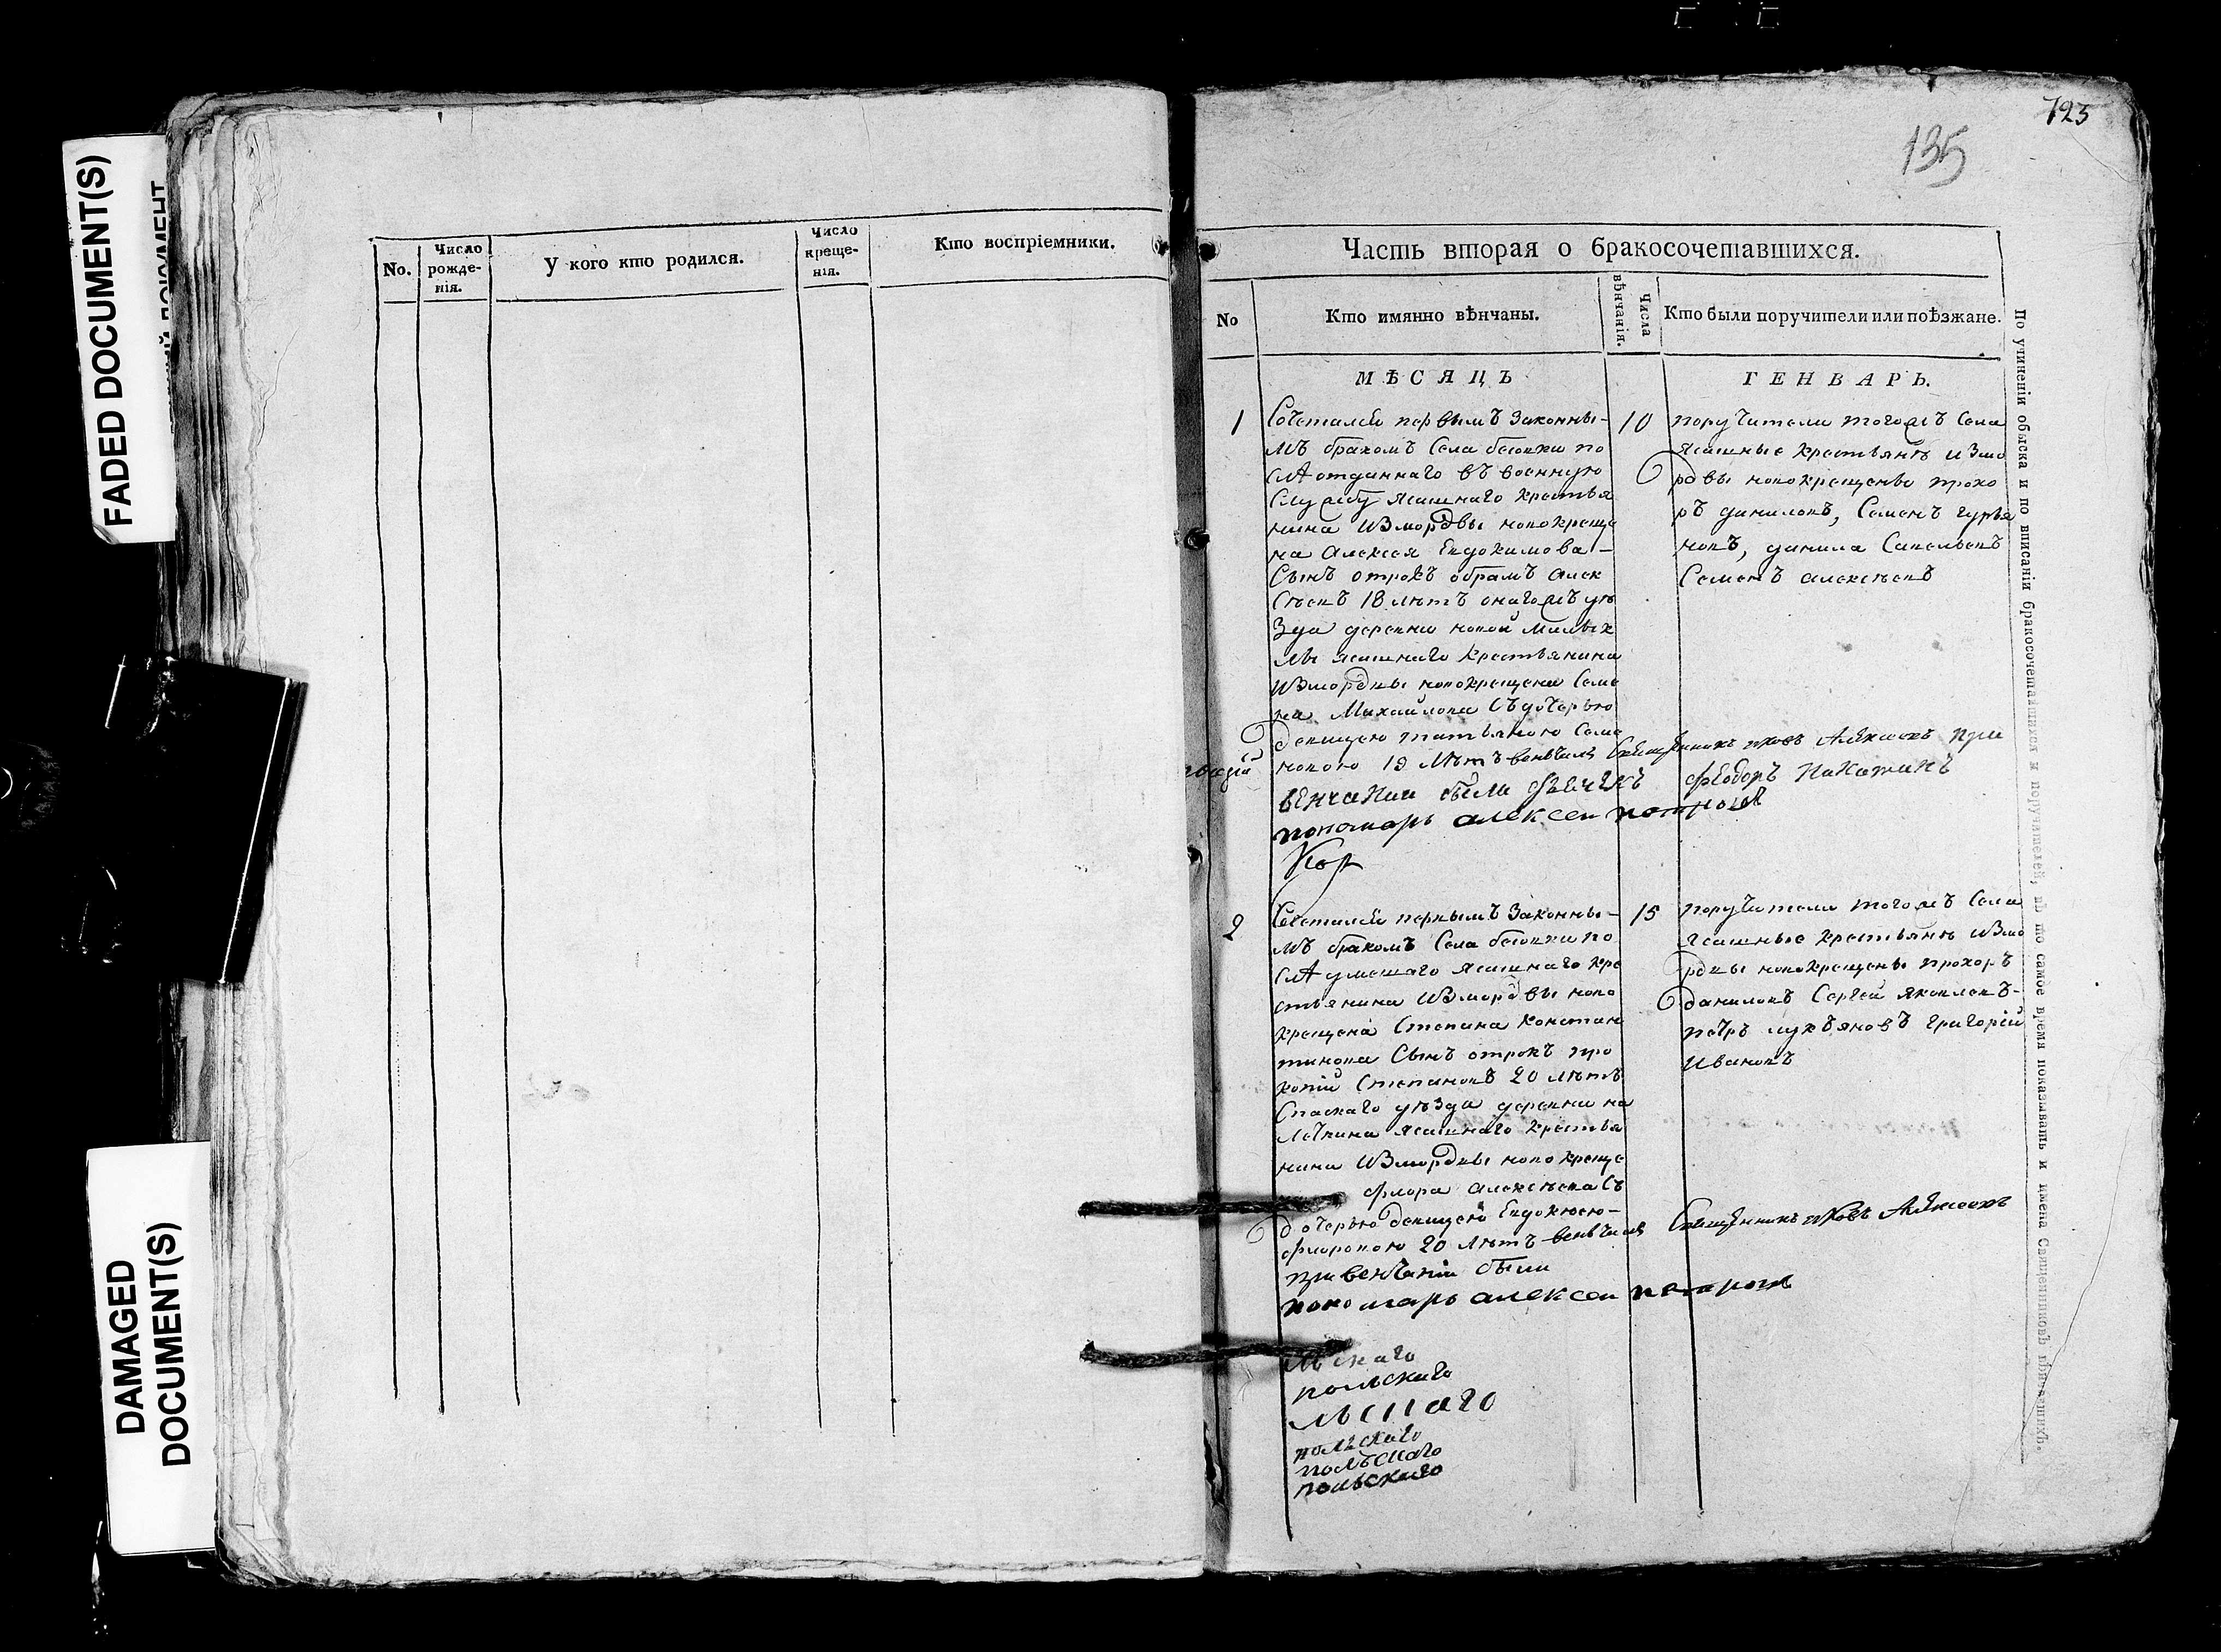 FADED DOCUMENT(S)
DAMAGED
DOCUMENT(S)
No.
Число
рожде-
нія.
У кого кто родился.
Число
креще-
нія.
Кто воспріемники.
723
135
Часть вторая о бракосочетавшихся.
No
Кто имянно вѣнчаны.
Числа
вѣнчанія.
Кто были поручители или поѣзжане.
МѢСЯЦЪ
ГЕНВАРЬ.
1
Сочетался первымъ законны-
мъ бракомъ села безовки по
слѣ отданнаго въ военную
службу ясашнаго крестья
нина изморДвы новокреще
на алексея Евдокимова -
Сынъ отрокъ абрамъ алек
сѣевъ 18 лѣтъ онагожъ уѣ
зда деревни новой
мы ясашнаго крестьянина
измордвы новокрещена семе
на Михаилова Съдочерью
девицею татьяною Семе
новою 19 лѣтъ венъчалъ Священникъ Алексеевъ при
венчании были Феодоръ
пономарь алексеи петровъ
10
поручители тогожъ села
Ясашные крестьянѣ измо
рдвы новокрещены прохо
ръ даниловъ, Семенъ гурья
новъ, данила Савельевъ
Семенъ алексѣевъ
2
Сочетался первымъ законны-
мъ бракомъ Села безовки по
слѣ умешаго ясашнаго кре
стьянина измордвы ново
крещена Степана констан
тинова Сынъ отрокъ про
копій Степановъ 20 лѣтъ
Спаскаго уѣзда деревни на
ясашнаго крестья
нина измордвы новокреще
флора алексѣева Съ
дочерью девицею Евдокіею-
флоровою 20 лѣтъ венъчалъ Священникъ Алексеевъ
при венчаніи были
пономарь алексеи петровъ
15
поручители тогожъ Села
Ясашные крестьянѣ измо
рдвы новокрещены прохоръ
даниловъ Сергеи яковлевъ-
петръ лукьяновъ григорій
Ивановъ
польскаго
польскаго
польскаго
польскаго
По учиненіи обыска и по вписаніи бракосочетавшихся и поручителей, въ то самое время показывать и имена Священниковъ вѣнчавшихъ.